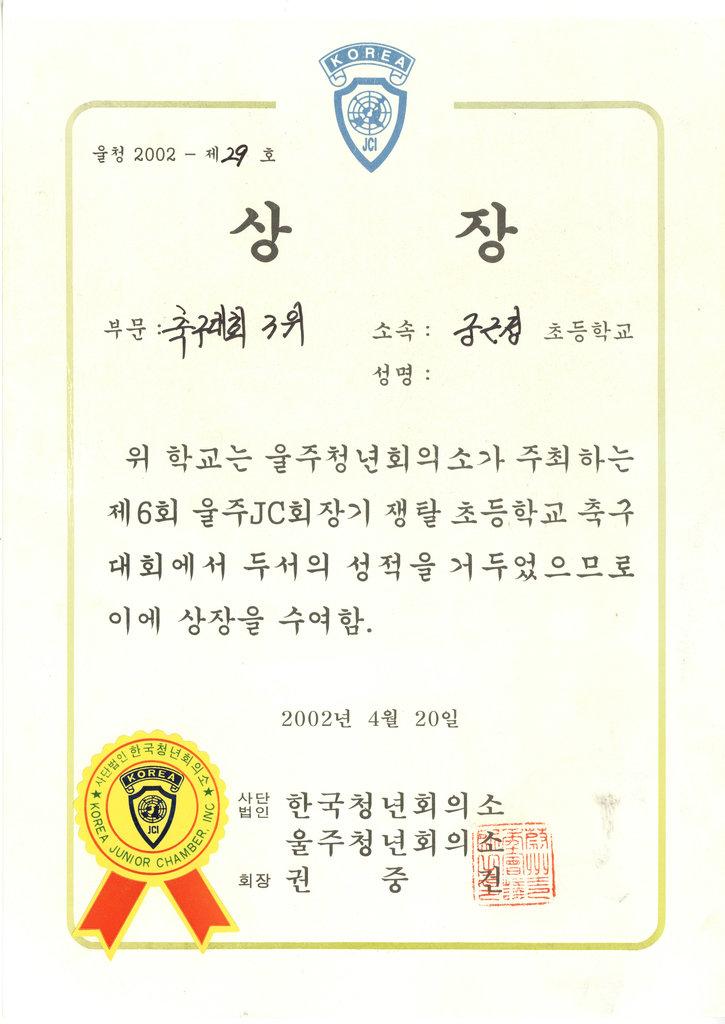 KOREA
JCI
울청 2002 - 제29 호
상 장
부문 : 축구대회 3위
소속 : 궁근정 초등학교
성명 :
위 학교는 울주청년회의소가 주최하는
제6회 울주JC회장기 쟁탈 초등학교 축구
대회에서 두서의 성적을 거두었으므로
이에 상장을 수여함.
2002년 4월 20일
사단법인 한국청년회의소
울주청년회의소
회장 권 중 견
★ 사단법인 한국청년회의소 ★
KOREA JUNIOR CHAMBER, INC
KOREA
JCI